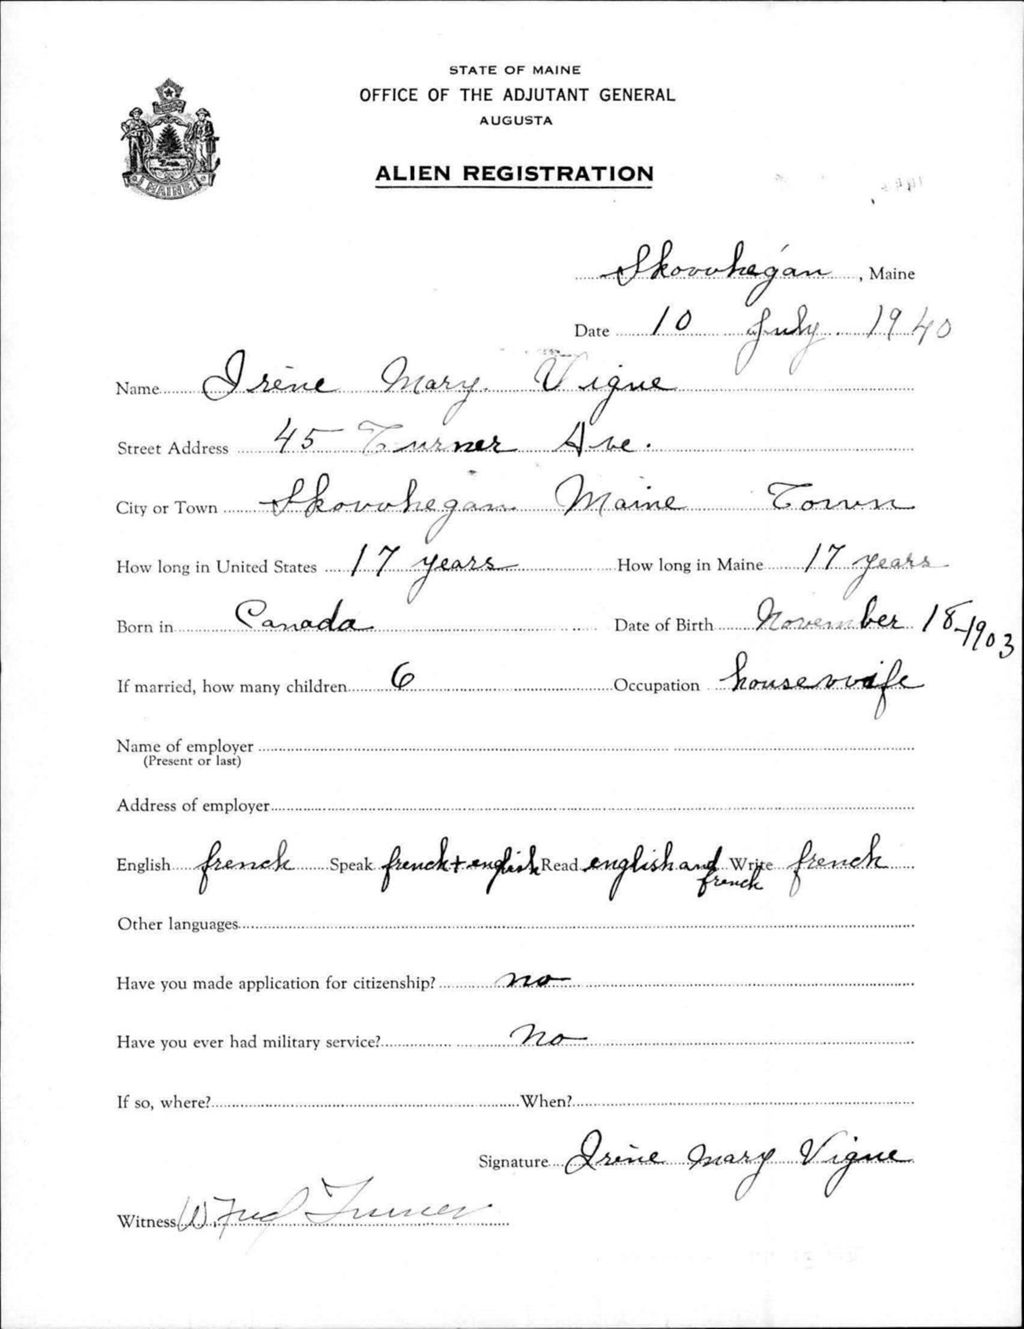 STATE OF MAINE
OFFICE OF THE ADJUTANT GENERAL
AUGUSTA
ALIEN REGISTRATION
MAINE
Skowhegan, Maine
Date 10 July 1940
Name Irène Mary Vigue
Street Address 45 Turner Ave.
City or Town Skowhegan Maine Town
How long in United States 17 years How long in Maine 17 years
Born in Canada Date of Birth November 18-1903
If married, how many children 6 Occupation housewife
Name of employer
(Present or last)
Address of employer
English french Speak french + english Read english and french Write french
Other languages
Have you made application for citizenship? no
Have you ever had military service? No
If so, where? When?
Signature Irène Mary Vigue
Witness W. Fred Turner